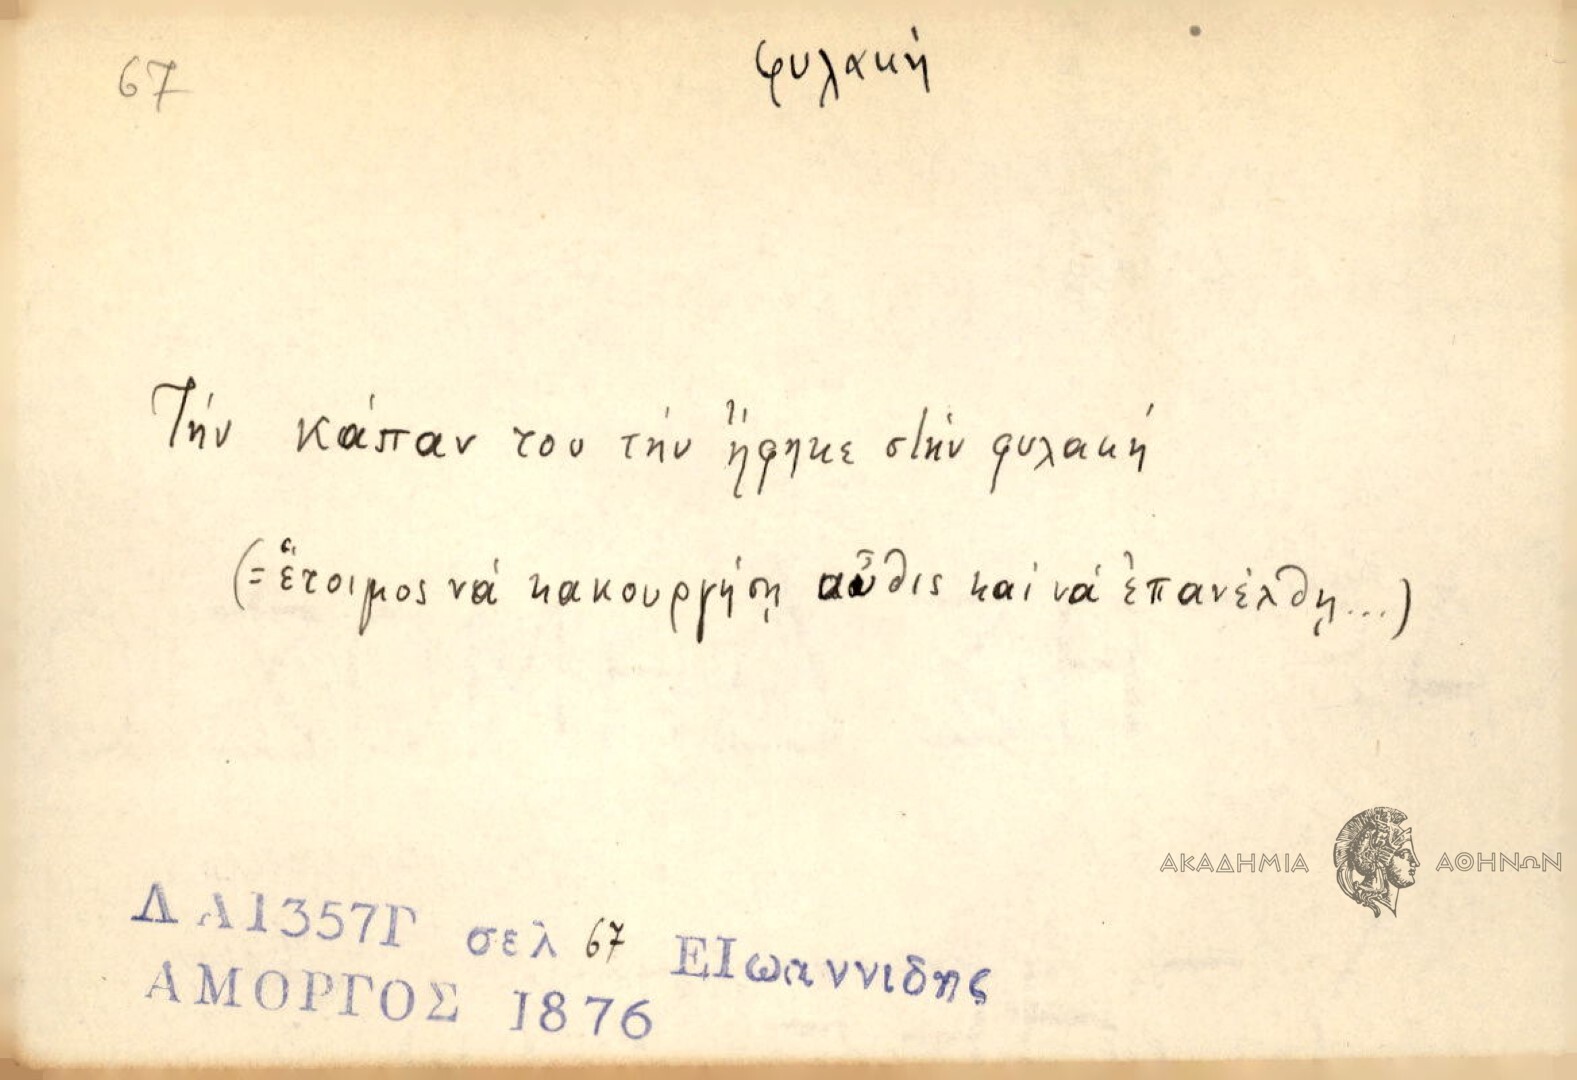 67
φυλακή
Τήν κάπαν του τήν ἤφηκε στήν φυλακή
(= ἕτοιμος νά κακουργήσῃ αὖθις καί νά ἐπανέλθῃ...)
ΑΚΑΔΗΜΙΑ ΑΘΗΝΩΝ
ΔΑ1357Γ σελ 67 ΕΙωαννιδης
ΑΜΟΡΓΟΣ 1876